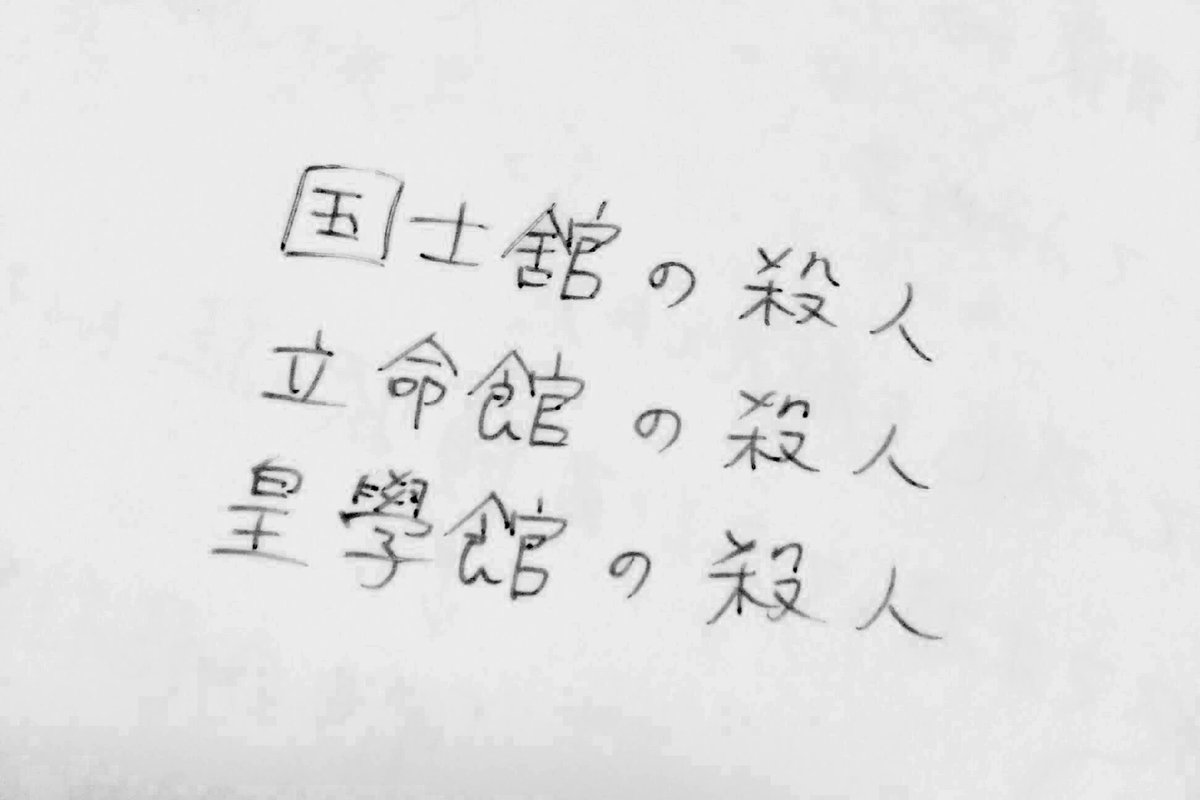 国士舘の殺人
立命館の殺人
皇學館の殺人